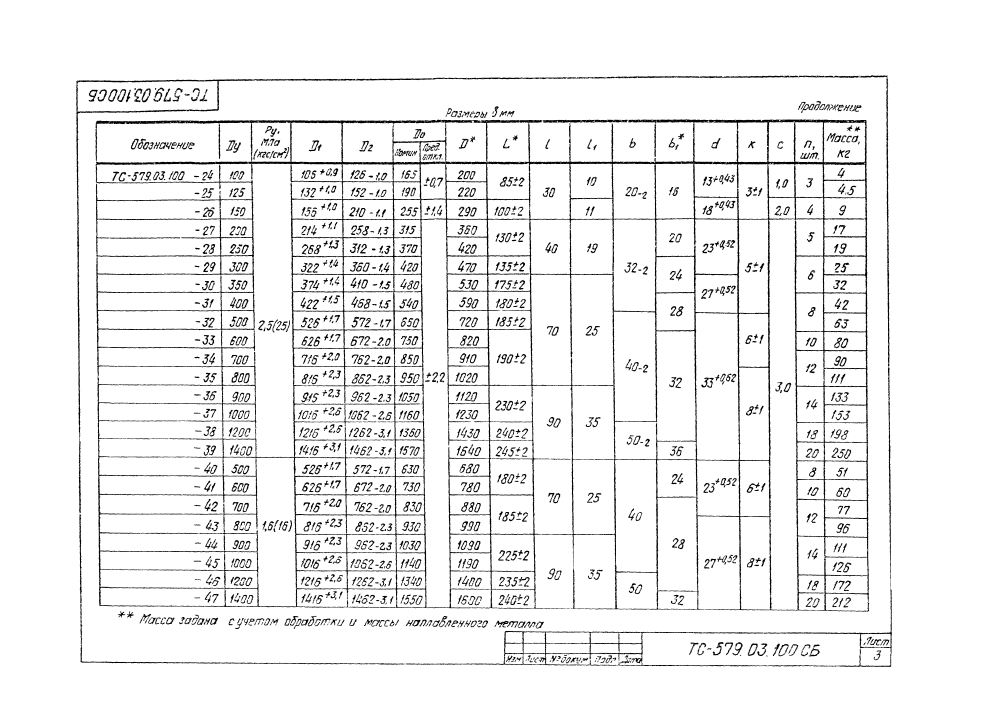 ТС-579.03.100СБ
Размеры в мм
Продолжение
Обозначение Dу Pу, МПа (кгс/см²) D1 D2 D0 Номин Пред. откл. D* L* l l1 b b1* d к с n, шт. Масса, кг **
ТС-579.03.100 -24 100 2,5(25) 106+0,9 126-1,0 165 ±0,7 200 85±2 30 10 20-2 16 13+0,43 3±1 1,0 3 4
-25 125 132+1,0 152-1,0 190 220 4.5
-26 150 156+1,0 210-1.1 255 ±1,4 290 100±2 11 18+0,43 2,0 4 9
-27 200 214+1,1 258-1,3 315 ±2,2 360 130±2 40 19 32-2 20 23+0,52 5±1 3,0 5 17
-28 250 268+1,3 312-1.3 370 420 19
-29 300 322+1,4 360-1,4 420 470 135±2 24 6 25
-30 350 374+1,4 410-1.5 480 530 175±2 70 25 27+0,52 32
-31 400 422+1,5 468-1.5 540 590 180±2 28 8 42
-32 500 526+1,7 572-1,7 650 720 185±2 40-2 33+0,62 6±1 63
-33 600 626+1,7 672-2.0 750 820 190±2 32 10 80
-34 700 716+2,0 762-2.0 850 910 12 90
-35 800 816+2,3 862-2.3 950 1020 8±1 111
-36 900 916+2,3 962-2.3 1050 1120 230±2 90 35 14 133
-37 1000 1016+2,6 1062-2.6 1160 1230 153
-38 1200 1216+2,6 1262-3,1 1360 1430 240±2 50-2 18 198
-39 1400 1416+3,1 1462-3,1 1570 1640 245±2 36 20 250
-40 500 1,6(16) 526+1,7 572-1,7 630 680 180±2 70 25 40 24 23+0,52 6±1 8 51
-41 600 626+1,7 672-2.0 730 780 10 60
-42 700 716+2.0 762-2.0 830 880 185±2 28 12 77
-43 800 816+2,3 862-2.3 930 990 27+0,52 8±1 96
-44 900 916+2,3 962-2.3 1030 1090 225±2 90 35 14 111
-45 1000 1016+2,6 1062-2.6 1140 1190 126
-46 1200 1216+2,6 1262-3.1 1340 1400 235±2 50 18 172
-47 1400 1416+3,1 1462-3.1 1550 1600 240±2 32 20 212
** Масса задана с учетом обработки и массы наплавленного металла
Изм Лист №докум Подп Дата
ТС-579.03.100 СБ
Лист
3